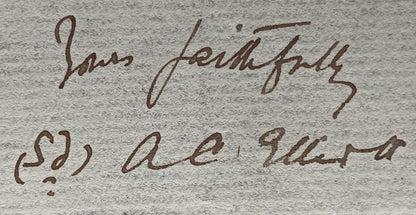 Yours faithfully
(Sd) A C Elliott
?